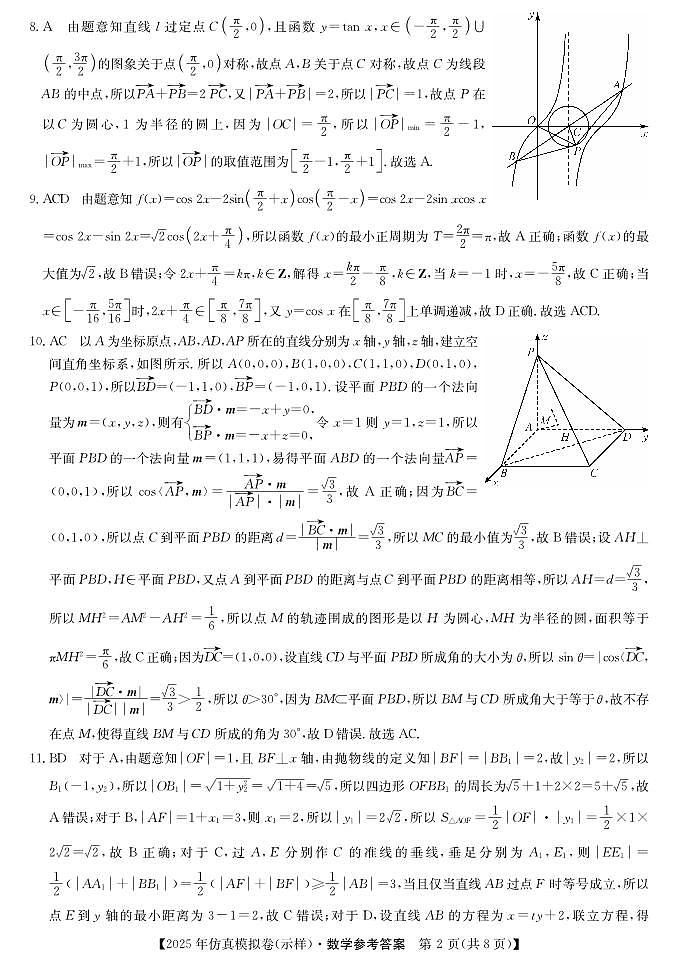 8. A 由题意知直线 l 过定点 C(π/2,0),且函数 y=tan x,x∈(-π/2,π/2)∪
(π/2,3π/2)的图象关于点(π/2,0)对称,故点 A,B 关于点 C 对称,故点 C 为线段
AB 的中点,所以\overrightarrow{PA}+\overrightarrow{PB}=2\overrightarrow{PC},又|\overrightarrow{PA}+\overrightarrow{PB}|=2,所以|\overrightarrow{PC}|=1,故点 P 在
以 C 为圆心,1 为半径的圆上,因为|OC|=π/2,所以|\overrightarrow{OP}|_{min}=π/2-1,
|\overrightarrow{OP}|_{max}=π/2+1,所以|\overrightarrow{OP}|的取值范围为[π/2-1,π/2+1].故选 A.
y
A
O
C
x
P
B
9. ACD 由题意知 f(x)=cos 2x-2sin(π/2+x)cos(π/2-x)=cos 2x-2sin xcos x
=cos 2x-sin 2x=√2cos(2x+π/4),所以函数 f(x)的最小正周期为 T=2π/2=π,故 A 正确;函数 f(x)的最
大值为√2,故 B 错误;令 2x+π/4=kπ,k∈Z,解得 x=kπ/2-π/8,k∈Z,当 k=-1 时,x=-5π/8,故 C 正确;当
x∈[-π/16,5π/16]时,2x+π/4∈[π/8,7π/8],又 y=cos x 在[π/8,7π/8]上单调递减,故 D 正确.故选 ACD.
10. AC 以 A 为坐标原点,AB,AD,AP 所在的直线分别为 x 轴,y 轴,z 轴,建立空
间直角坐标系,如图所示.所以 A(0,0,0),B(1,0,0),C(1,1,0),D(0,1,0),
P(0,0,1),所以\overrightarrow{BD}=(-1,1,0),\overrightarrow{BP}=(-1,0,1).设平面 PBD 的一个法向
量为 m=(x,y,z),则有{\overrightarrow{BD}·m=-x+y=0, \overrightarrow{BP}·m=-x+z=0,令 x=1 则 y=1,z=1,所以
平面 PBD 的一个法向量 m=(1,1,1),易得平面 ABD 的一个法向量\overrightarrow{AP}=
(0,0,1),所以 cos⟨\overrightarrow{AP},m⟩=\overrightarrow{AP}·m/(|\overrightarrow{AP}|·|m|)=√3/3,故 A 正确;因为\overrightarrow{BC}=
z
P
A
M
H
D
y
B
C
x
(0,1,0),所以点 C 到平面 PBD 的距离 d=|\overrightarrow{BC}·m|/|m|=√3/3,所以 MC 的最小值为√3/3,故 B 错误;设 AH⊥
平面 PBD,H∈平面 PBD,又点 A 到平面 PBD 的距离与点 C 到平面 PBD 的距离相等,所以 AH=d=√3/3,
所以 MH²=AM²-AH²=1/6,所以点 M 的轨迹围成的图形是以 H 为圆心,MH 为半径的圆,面积等于
πMH²=π/6,故 C 正确;因为\overrightarrow{DC}=(1,0,0),设直线 CD 与平面 PBD 所成角的大小为 θ,所以 sin θ=|cos⟨\overrightarrow{DC},
m⟩|=|\overrightarrow{DC}·m|/(|\overrightarrow{DC}||m|)=√3/3>1/2,所以 θ>30°,因为 BM⊂平面 PBD,所以 BM 与 CD 所成角大于等于 θ,故不存
在点 M,使得直线 BM 与 CD 所成的角为 30°,故 D 错误.故选 AC.
11. BD 对于 A,由题意知|OF|=1,且 BF⊥x 轴,由抛物线的定义知|BF|=|BB₁|=2,故|y₂|=2,所以
B₁(-1,y₂),所以|OB₁|=√(1+y₂²)=√(1+4)=√5,所以四边形 OFBB₁ 的周长为√5+1+2×2=5+√5,故
A 错误;对于 B,|AF|=1+x₁=3,则 x₁=2,所以|y₁|=2√2,所以 S_{△AOF}=1/2|OF|·|y₁|=1/2×1×
2√2=√2,故 B 正确;对于 C,过 A,E 分别作 C 的准线的垂线,垂足分别为 A₁,E₁,则|EE₁|=
1/2(|AA₁|+|BB₁|)=1/2(|AF|+|BF|)≥1/2|AB|=3,当且仅当直线 AB 过点 F 时等号成立,所以
点 E 到 y 轴的最小距离为 3-1=2,故 C 错误;对于 D,设直线 AB 的方程为 x=ty+2,联立方程,得
【2025 年仿真模拟卷(示样)·数学参考答案 第 2 页(共 8 页)】